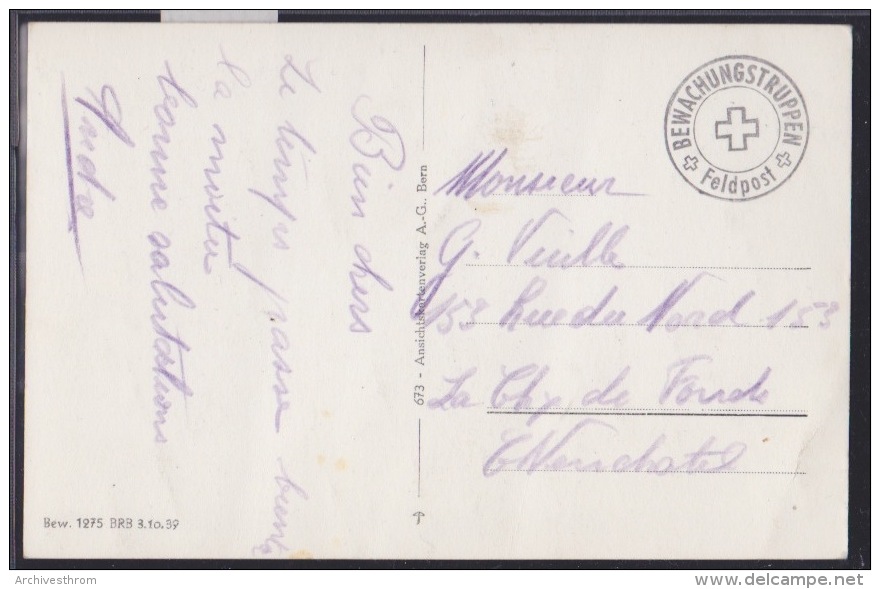 Bien chers
Le temps passe bientô
la moitié
bonne salutations
André
Bew. 1275 BRB 3.10.39
673 - Ansichtskartenverlag A.-G., Bern
BEWACHUNGSTRUPPEN
Feldpost
Monsieur
G. Vuille
153 Rue du Nord 153
La Chx de Fonds
Neuchatel
Archivesthrom
delcampe.net